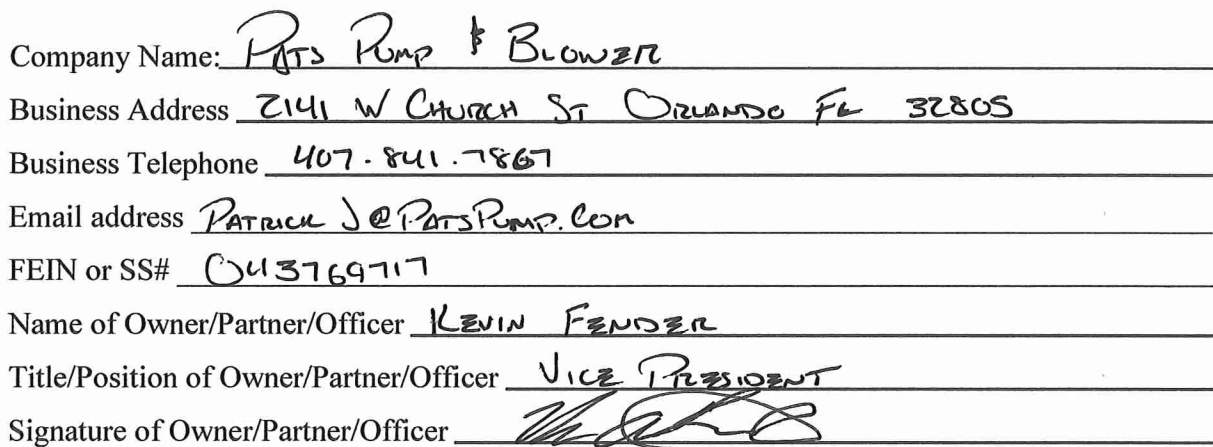 Company Name: Pats Pump & Blower
Business Address 2141 W Church St Orlando FL 32805
Business Telephone 407.841.7867
Email address PatrickJ@PatsPump.Com
FEIN or SS# 043769717
Name of Owner/Partner/Officer Kevin Fender
Title/Position of Owner/Partner/Officer Vice President
Signature of Owner/Partner/Officer